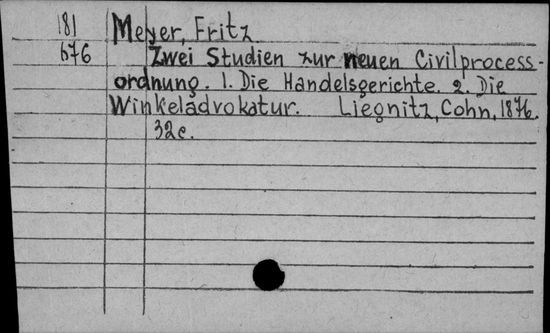 181 Meyer, Fritz
676 Zwei Studien zur neuen Civilprocess-
ordnung. 1. Die Handelsgerichte. 2. Die
Winkeladvokatur. Liegnitz, Cohn, 1876.
32 c.